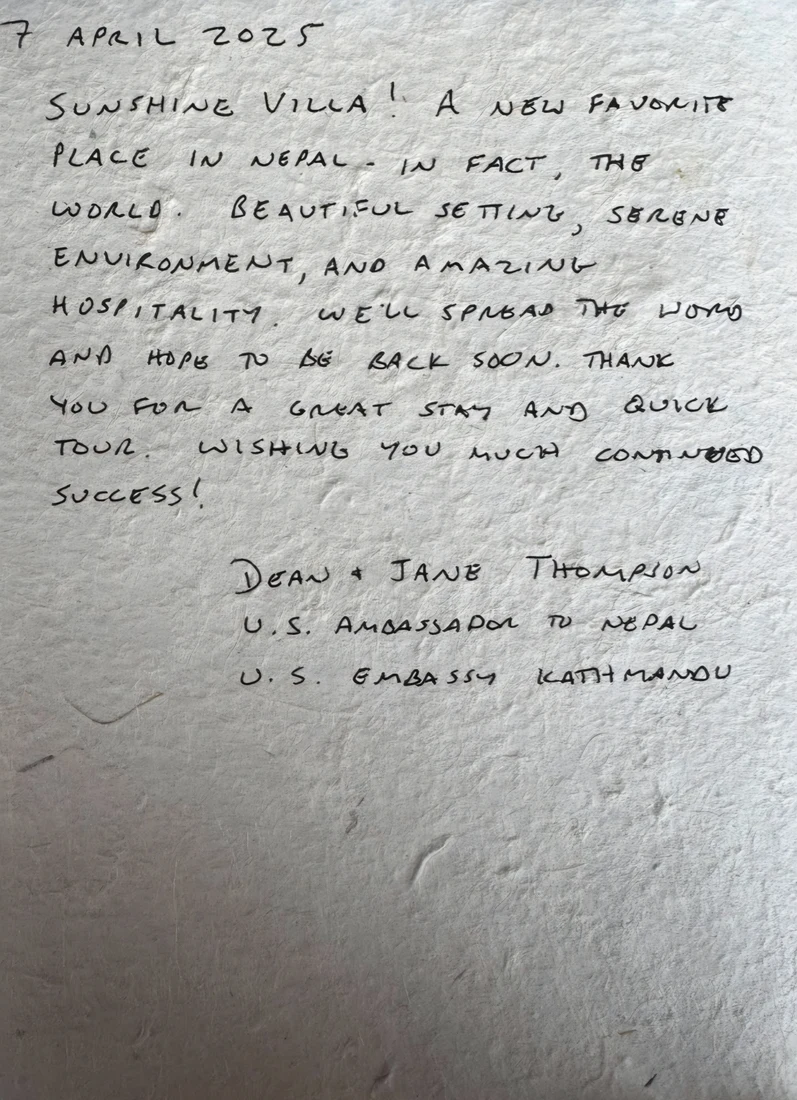 7 APRIL 2025
SUNSHINE VILLA! A NEW FAVORITE
PLACE IN NEPAL - IN FACT, THE
WORLD. BEAUTIFUL SETTING, SERENE
ENVIRONMENT, AND AMAZING
HOSPITALITY. WE'LL SPREAD THE WORD
AND HOPE TO BE BACK SOON. THANK
YOU FOR A GREAT STAY AND QUICK
TOUR. WISHING YOU MUCH CONTINUED
SUCCESS!
DEAN + JANE THOMPSON
U.S. AMBASSADOR TO NEPAL
U.S. EMBASSY KATHMANDU